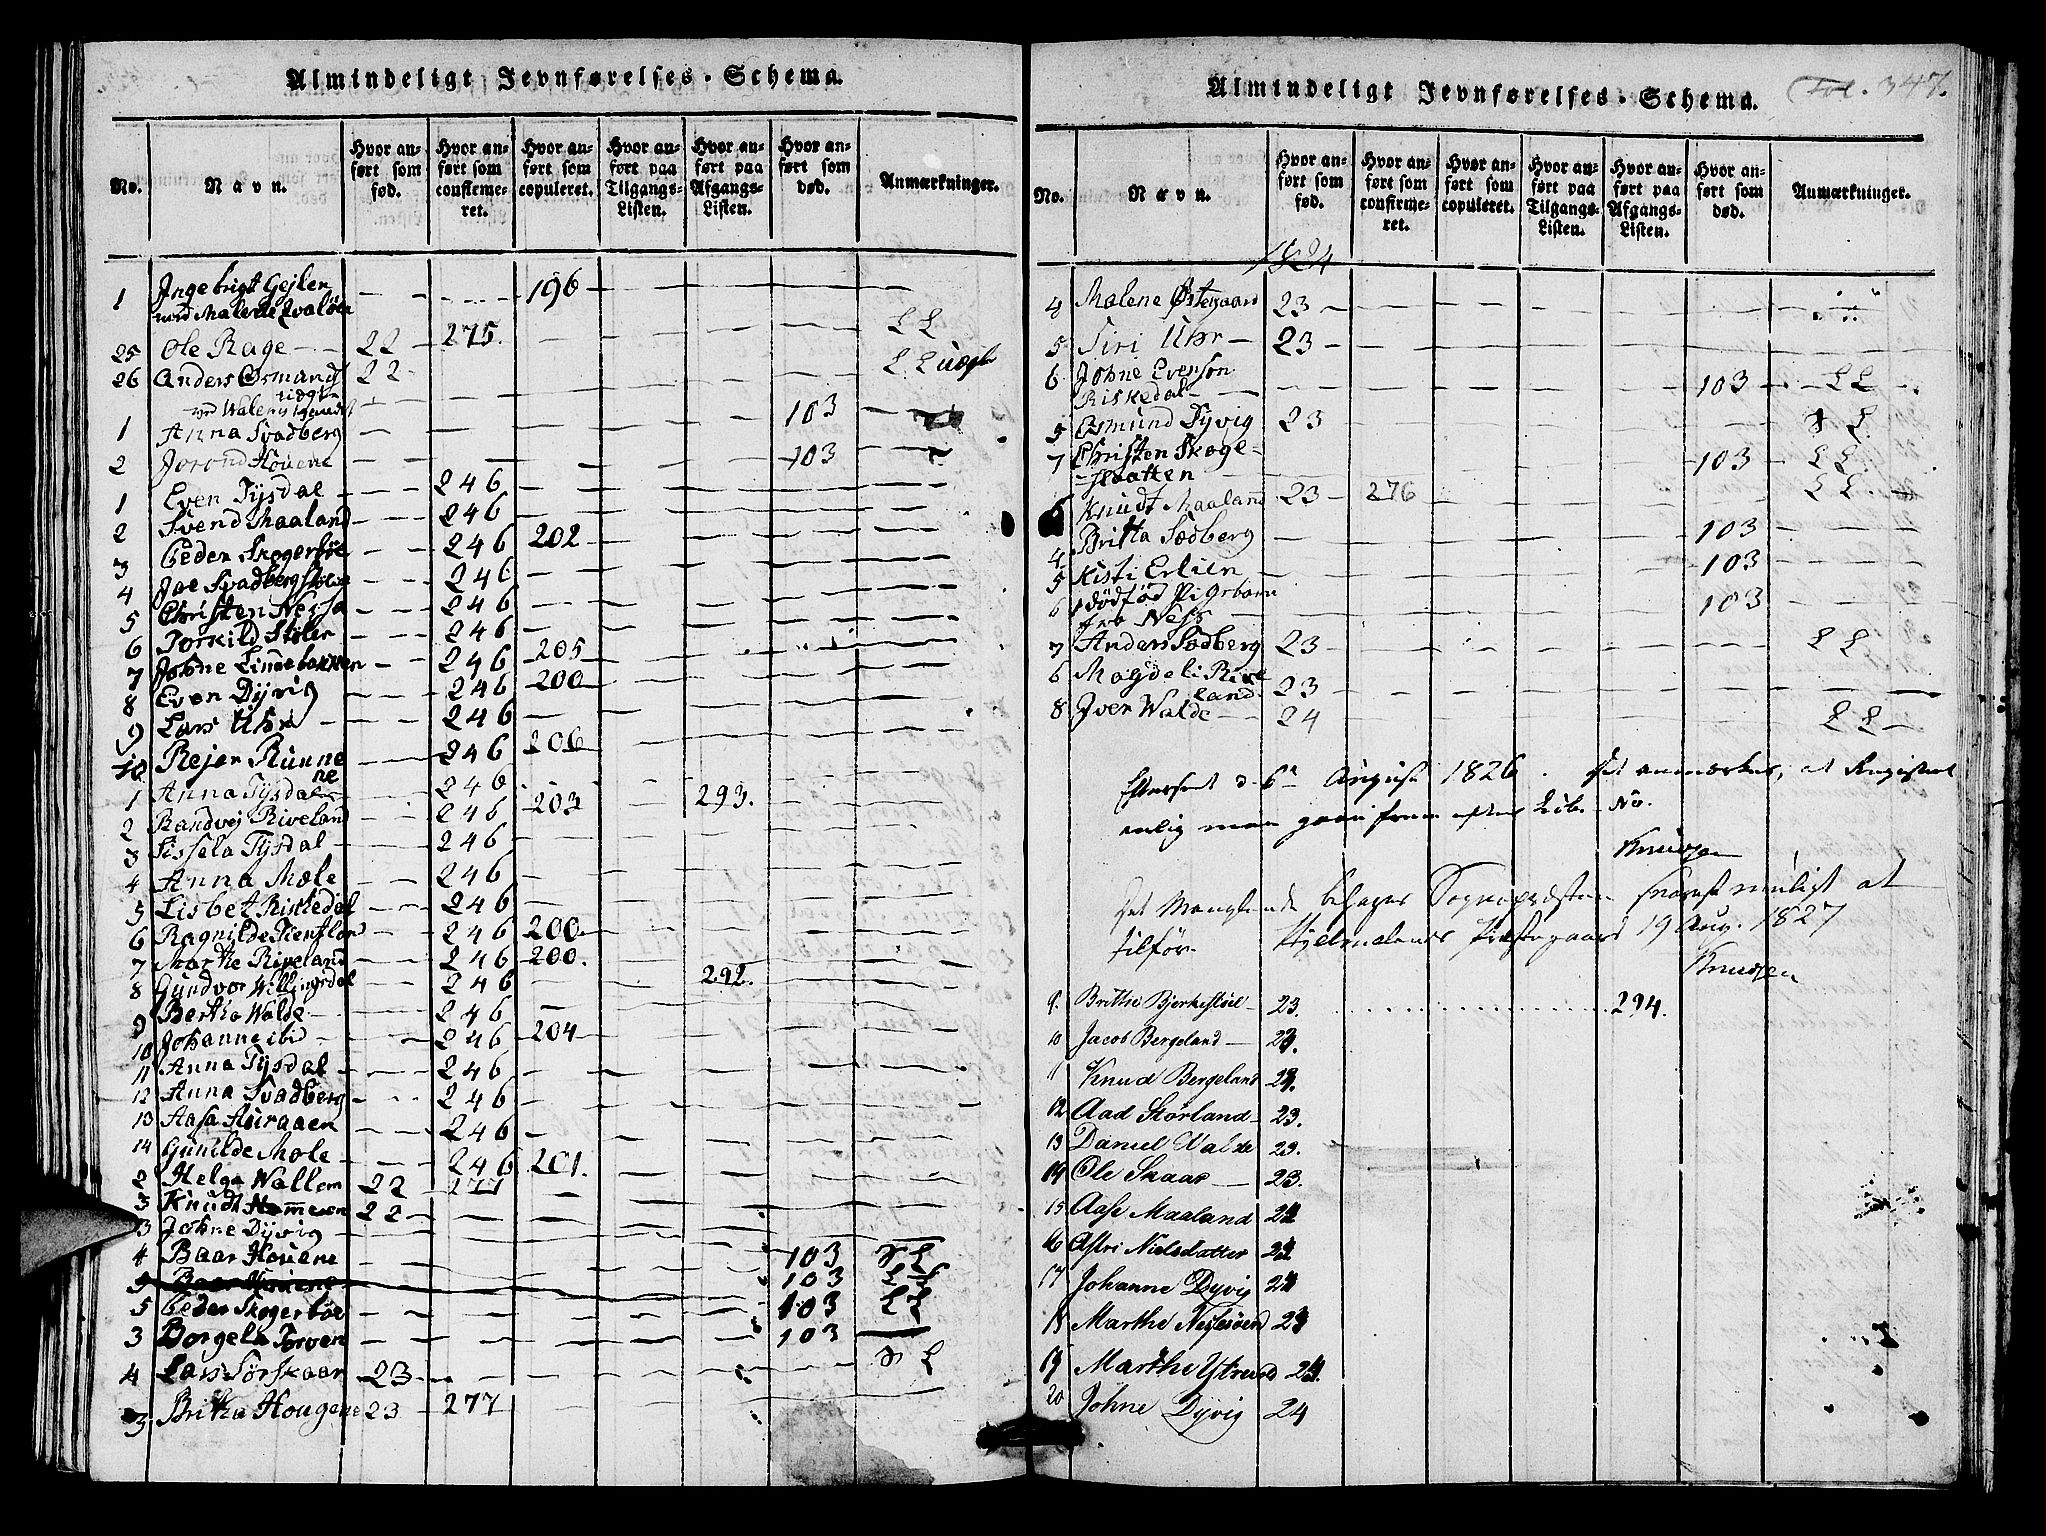 Almindeligt Jevnførelses-Schema.
No. Navn. Hvor anført som fød. Hvor anført som confirmeret. Hvor anført som copuleret. Hvor anført paa Tilgangs-Listen. Hvor anført paa Afgangs-Listen. Hvor anført som død. Anmærkninger.
1 Ingebrigt Gejlen
med Malene 196
25 Ole Rage 22 275. L L
26 Anders Osmunds 22 L L uægt
uægt
1 Anna Svadberg 103
2 Jorond Houene 103
1 Even Tysdal 246
2 Svend Maaland 246
3 Peder Skogerböe 246 202
4 Joe Svadbergstölen 246
5 Christen Nessa 246
6 Torkild Stölen 246
7 Johne Lindebakken 246 205
8 Even Dyvig 246 200
9 Lars Uhr 246
10 Rejer Runne 246 206
ne
1 Anna Tysdal 246
2 Randvej Riveland 246 203 293.
3 Sissela Tysdal 246
4 Anna Mæle 246
5 Lisbet Riskedal 246
6 Ragnilde 246 200
7 Marthe Riveland 246 200.
8 Gundvor Willingsdal 246 292.
9 Bertha Walde 246
10 Johanne ibid 246 204
11 Anna Tysdal 246
12 Anna Svadberg 246
13 Aasa 246
14 Gunilde Mæle 246 201.
2 Helge Wallem 22 277
3 Knudt 22
3 Johne Dyvig
4 Baar Houene 103 S L
5 Baar Houene 103 L L
5 Peder Skogerböe 103 L L
3 Borgela Torven 103
4 Lars Sørskaar 23 S L
3 Britha Hougene 23 277
Almindeligt Jevnførelses-Schema. Fol. 347.
No. Navn. Hvor anført som fød. Hvor anført som confirmeret. Hvor anført som copuleret. Hvor anført paa Tilgangs-Listen. Hvor anført paa Afgangs-Listen. Hvor anført som død. Anmærkninger.
1824
4 Malene Østegaard 23
5 Siri Uhr 23
6 Johne Evenson
Riskedal 103 L L
5 Osmund Dyvig 23 S L
7 Christen Skoge-
slatten 103 L L
6 Knudt Maaland 23 276 L L
4 Britta Sødberg 103
5 Kisti Erlien 103
6 dödfød Pigebarn
fra Ness 103
7 Anders Sødberg 23 L L
6 Magdeli Rive
land 23
8 Iver Walde 24 L L
Efterseet d. 6te August 1826. Det anmærkes, at Registeret
nelig maa gaae frem efter Lib. No.
Knudsen
Det Manglende behager Sognepræsten snarest muligt at
tilför. Hjelmelands Præstegaard 19 Aug. 1827
Knudsen
9. Brithe Bjerkestöel 23. 294.
10 Jacob Bergeland 24.
11 Knud Bergeland 24.
12 Aad Størland 23.
13 Daniel Walde 23.
14 Ole Skaar 23.
15 Aase Maaland 24
16 Astri Nielsdatter 24
17 Johanne Dyvig 24
18 Marthe 24
19 Marthe 24.
20 Johne Dyvig 24